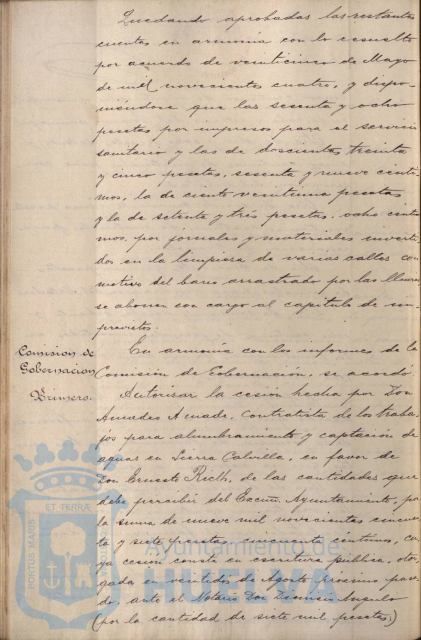 Quedando aprobadas las restantes
cuentas en armonía con lo resuelto
por acuerdo de veinticinco de Mayo
de mil novecientos cuatro, y dispo-
niéndose que las sesenta y ocho
pesetas por impresos para el servicio
sanitario y las de doscientas treinta
y cinco pesetas, sesenta y nueve centi-
mos, la de ciento veintiuna pesetas
y la de setenta y tres pesetas, ocho centi-
mos, por jornales y materiales inverti-
dos en la limpieza de varias calles con
motivo del barro arrastrado por las lluvias
se abonen con cargo al capítulo de im-
previstos.
Comision de
Gobernacion
Primero.
En armonía con los informes de la
Comisión de Gobernación, se acordó
Autorisar la cesión hecha por Don
Amadeo Amade, Contratista de los traba-
jos para alumbramiento y captación de
aguas en Sierra Calvilla, en favor de
Don Ernesto Rieth, de las cantidades que
debe percibir del Excmo. Ayuntamiento, por
la suma de nueve mil novecientas cincuen-
ta y siete pesetas cincuenta centimos, cu-
ya cesión consta en escritura pública, otor-
gada en veintidos de Agosto proximo pasa-
do, ante el Notario Don Dionisio Angulo
(por la cantidad de siete mil pesetas.)
PORTUS MARIS
ET TERRÆ
Ayuntamiento de
HUELVA